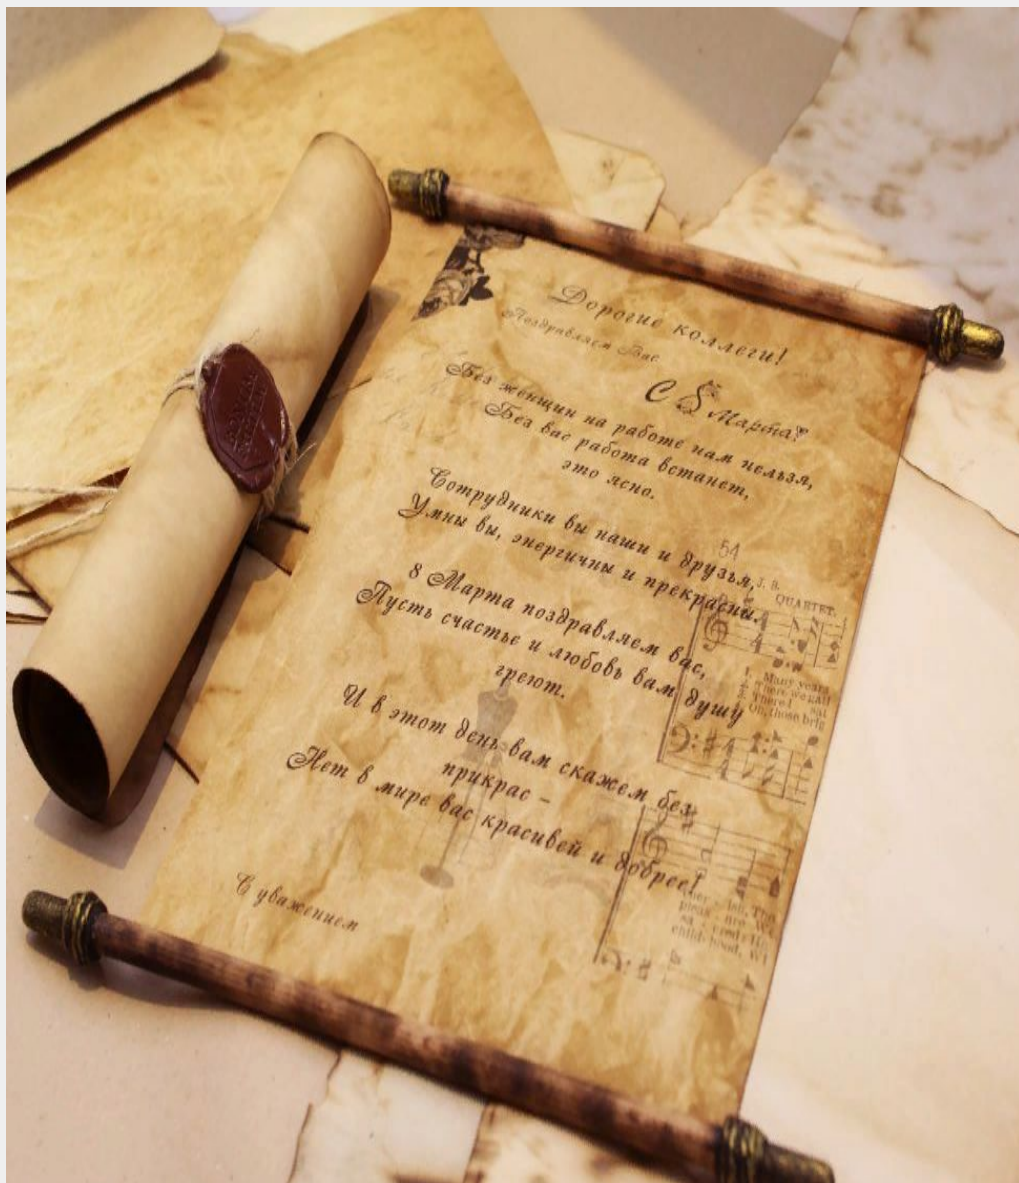 Дорогие коллеги!
Поздравляем Вас
С 8 Марта!
Без женщин на работе нам нельзя,
Без вас работа встанет,
это ясно.
Сотрудники вы наши и друзья,
Умны вы, энергичны и прекрасны.
8 Марта поздравляем вас,
Пусть счастье и любовь вам душу
греют.
И в этот день вам скажем без
прикрас –
Нет в мире вас красивей и добрее!
С уважением
54
J. B.
QUARTET.
1. Many years
2. There we gath
3. There I sat
Oh, those brig
childhood, Wi